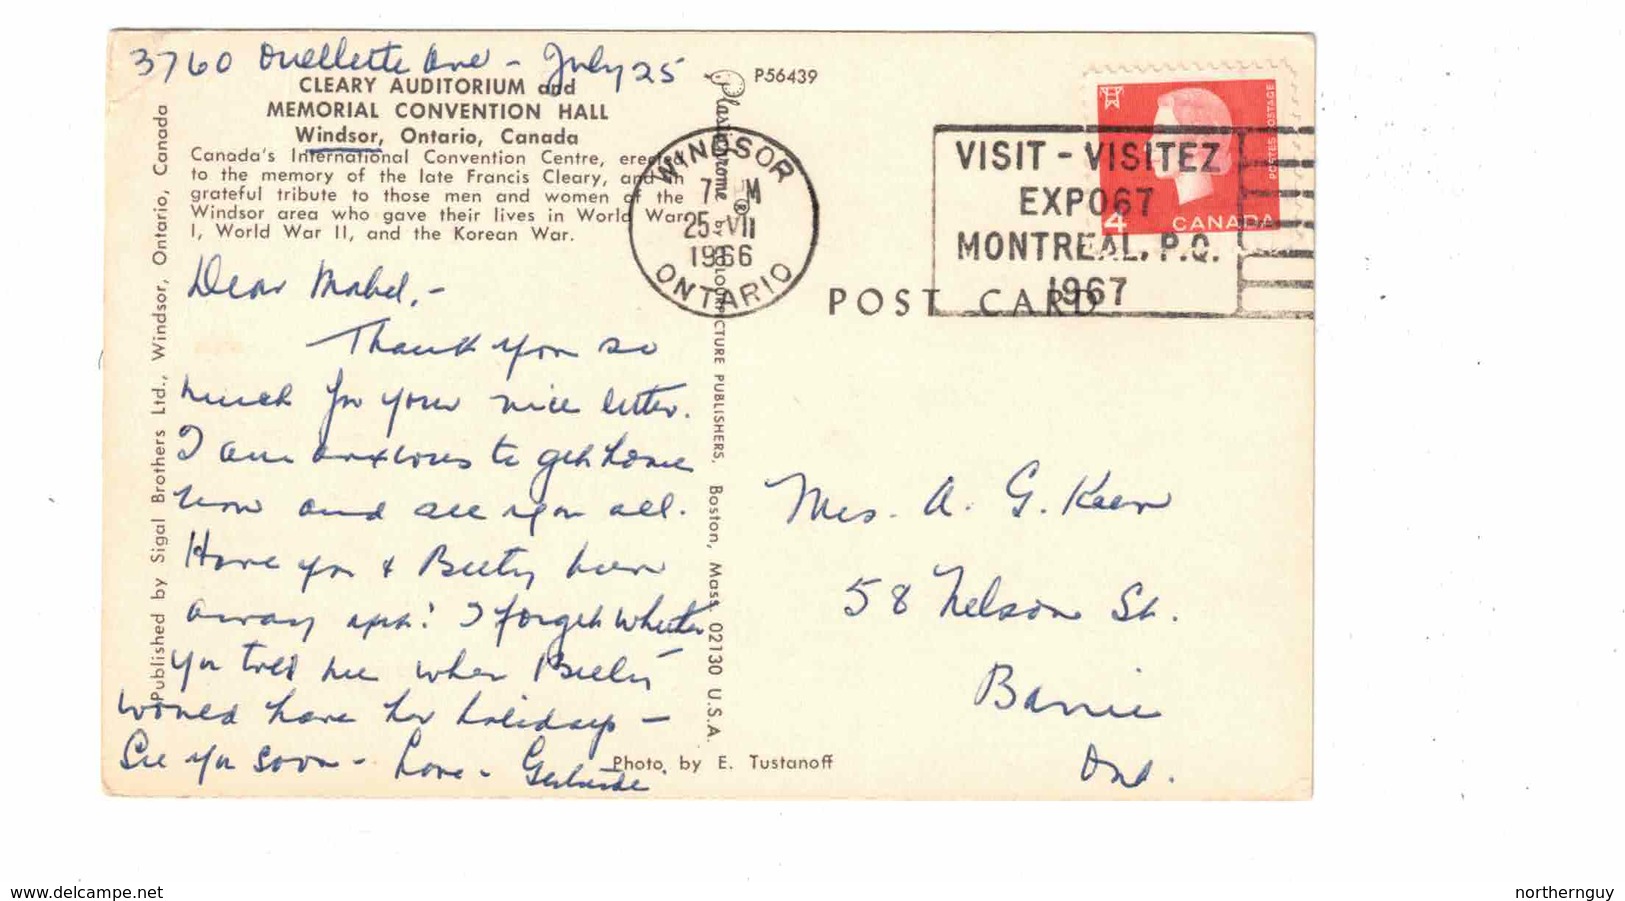 3760 Ouellette Ave - July 25
CLEARY AUDITORIUM and
MEMORIAL CONVENTION HALL
Windsor, Ontario, Canada
Canada's International Convention Centre, erected
to the memory of the late Francis Cleary, and in
grateful tribute to those men and women of the
Windsor area who gave their lives in World War
I, World War II, and the Korean War.
Dear Mabel, -
Thank you so
much for your nice letter.
I am anxious to get home
now and see you all.
Have you & Betty been
away yet? I forget whether
you told me when Betty
would have her holidays -
See you soon - Love - Gertrude
Published by Sigal Brothers Ltd., Windsor, Ontario, Canada
Plastichrome ® by COLOURPICTURE PUBLISHERS, Boston, Mass. 02130 U.S.A.
P56439
WINDSOR
7 PM
25 VII
1966
ONTARIO
VISIT - VISITEZ
EXPO67
MONTREAL, P.Q.
1967
POSTES POSTAGE
4 CANADA
POST CARD
Mrs. A. G. Keen
58 Nelson St.
Barrie
Ont.
Photo by E. Tustanoff
www.delcampe.net
northernguy